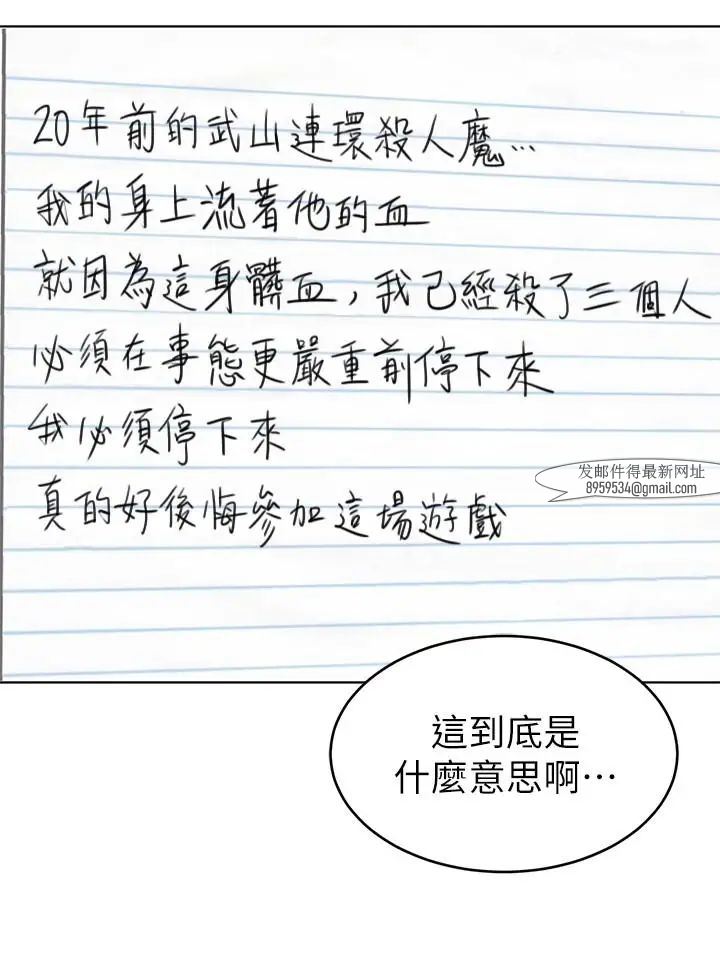 20年前的武山連環殺人魔…
我的身上流著他的血
就因為這身髒血，我已經殺了三個人
必須在事態更嚴重前停下來
我必須停下來
发邮件得最新网址
8959534@gmail.com
真的好後悔參加這場遊戲
這到底是
什麼意思啊…